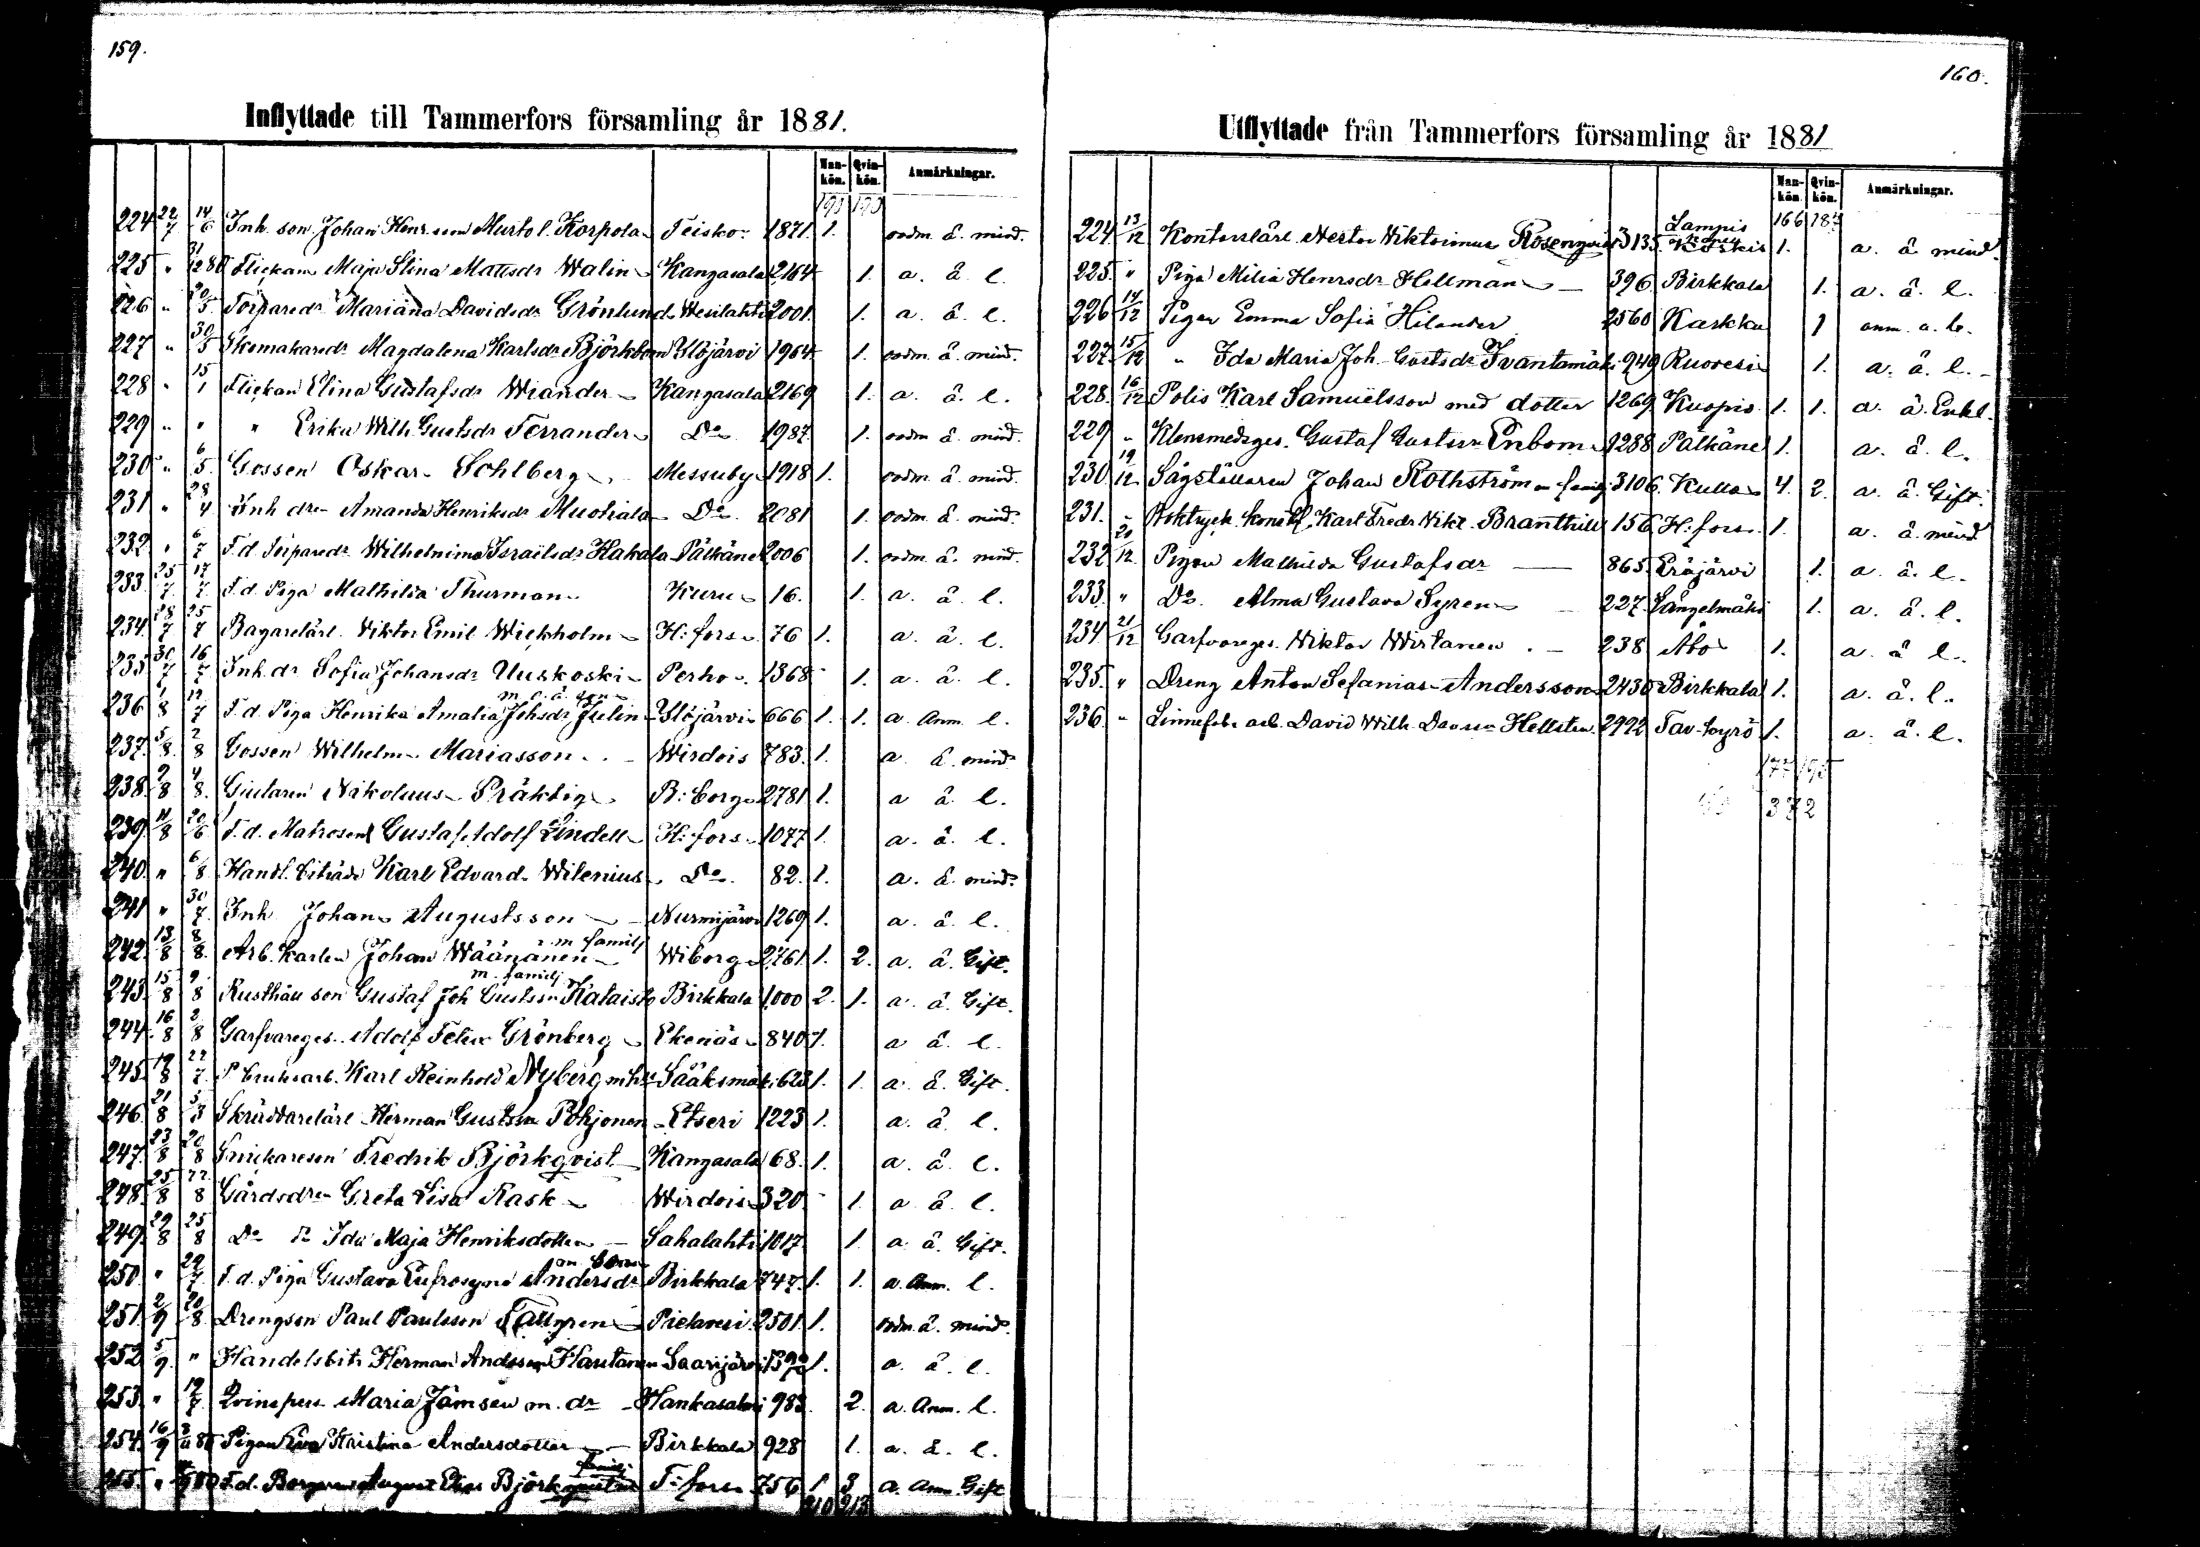 159.
Inflyttade till Tammerfors församling år 1881.
Man-kön. Qvin-kön. Anmärkningar.
224 22/7 14/6 Inh. son Johan Henr.sson Murto l. Korpola Teisko 1871. 1. oadm. ä. mind.
225 " 31/12 80 Flickan Maja Stina Mattsdr Walin Kangasala 2164 1. a. ä. l.
226 " 20/5 Torparedr Mariana Davidsdr Grönlund Wesilahti 2001. 1. a. ä. l.
227 " 30/5 Skomakaredr Magdalena Karlsdr Björkbom Ylöjärvi 1964 1. oadm. ä. mind.
228 " 15/1 Flickan Elina Gustafsdr Wiander Kangasala 2169 1. a. ä. l.
229 " " " Erika Wilh. Gustsdr Terrander Do 1987. 1. oadm. ä. mind.
230 " 6/5 Gossen Oskar Sohlberg Messuby 1918 1. oadm. ä. mind.
231 " 28/4 Inh. dr Amanda Henriksdr Muotiala Do 2081 1. oadm. ä. mind.
232 " 6/7 F.d. Torparedr Wilhelmina Israëlsdr Hakala Pälkäne 2006 1. oadm. ä. mind.
233. 25/7 17/7 F.d. Piga Mathilda Thurman Kuru 16. 1. a. ä. l.
234. 28/7 25/7 Bagarelärl. Viktor Emil Wickholm H:fors 76 1. a. ä. l.
235 30/7 16/7 Inh. dr Sofia Johansdr Uuskoski Perho 1368 1. a. ä. l.
236 1/8 19/7 F.d. Piga Henrika Amalia Johsdr Julin m. o. ä. son Ylöjärvi 666 1. 1. a. Anm. l.
237. 5/8. 2/8 Gossen Wilhelm Mariasson Wirdois 783. 1. a. ä. mind.
238. 9/8 4/8 Giutaren Nikolaus Präktig B:borg 2781 1. a ä. l.
239 11/8 20/6 F.d. Matrosen Gustaf Adolf Lindell H:fors 1077 1. a. ä. l.
240. " 6/8 Handl. biträde Karl Edvard Wilenius Do 82. 1. a. ä. mind.
241 " 30/7. Inh Johan Augustsson Nurmijärvi 1269 1. a. ä. l.
242. 13/8 8/8. Arb. karlen Johan Wäänänen m familj Wiborg 2761 1. 2. a. ä. Gift.
243. 15/8 9/8 Rusthåll son Gustaf Joh Gustsson Kataisto m. familj Birkkala 1,000 2. 1. a. ä. Gift.
244. 16/8 2/8 Garfvareges. Adolf Felix Grönberg Ekenäs 840 1. a ä. l.
245. 19/8 22/7. P. bruksarb. Karl Reinhold Nyberg m. h. Sääksmäki 623 1. 1. a. ä. Gift.
246. 21/8 5/3 Skräddarelärl Herman Gustsson Pohjonen Etseri 1223 1. a. ä. l.
247. 23/8 20/8 Snickareson Fredrik Björkqvist Kangasala 68. 1. a. ä. l.
248. 25/8 22/8 Gårdsdr Greta Lisa Rask Wirdois 320 1. a. ä. l.
249. 29/8 25/8 Do Do Ida Maja Henriksdotter Sahalahti 1017 1. a. ä. Gift.
250. " 29/7 F.d. Piga Gustava Eufrosyna Andersdr m barn Birkkala 747. 1. 1. a. Anm. l.
251. 2/9 20/8. Drengson Paul Paulsson Tallgren Pielavesi 2501. 1. oadm. ä. mind.
252 5/9. " Handelsbitr Herman Andsson Hautanen Saarijärvi 1. a. ä. l.
253. " 19/7 Qvinspers Maria Jämsen m. dr Hankasalmi 983. 2. a. Anm. l.
254. 16/9 Pigan Eva Kristina Andersdotter Birkkala 928 1. a. ä. l.
255. " F.d. Borgaren August Elias Björkqvist familj T:fors 756 1 3 a. Anm. Gift
210 213
160.
Utflyttade från Tammerfors församling år 1881
Man-kön. Qvin-kön. Anmärkningar.
166 183
224. 13/12 Kontorslärl. Nestor Viktorinus Rosenqvist 3135. Lampis 1. a. ä. mind.
225. " Piga Milia Henrsdr Hellman 396 Birkkala 1. a. ä. l.
226 14/12 Pigan Emma Sofia Hilander 2560 Karkku 1 anm. a. l.
227. 15/12 " Ida Maria Joh. Gustsdr Ivantamäki 949 Ruovesi 1. a. ä. l.
228. 16/12 Polis Karl Samuelsson med dotter 1269 Kuopio 1. 1. a. ä. Enkl.
229 " Klensmedsges. Gustaf Gustsson Enbom 1288 Pälkäne 1. a. ä. l.
230 19/12 Sågställaren Johan Rothström m familj 3106. Kulla 4. 2. a. ä. Gift.
231. " Boktryck. konstf. Karl Fredr Vikt. Branthill 156 H:fors 1. a. ä. mind
232 20/12. Pigan Mathilda Gustafsdr 865. Eräjärvi 1. a. ä. l.
233. " Do. Alma Gustava Syren 227. Längelmäki 1. a. ä. l.
234 21/12 Garfvareges. Viktor Wirtanen 238 Åbo 1. a. ä l.
235. " Dreng Anton Sefanias Andersson 2430 Birkkala 1. a. ä. l.
236. " Linnefabr. arb. David Wilh. Davsson Hellsten 2992 Tav-kyrö 1. a. ä. l.
177 195
372